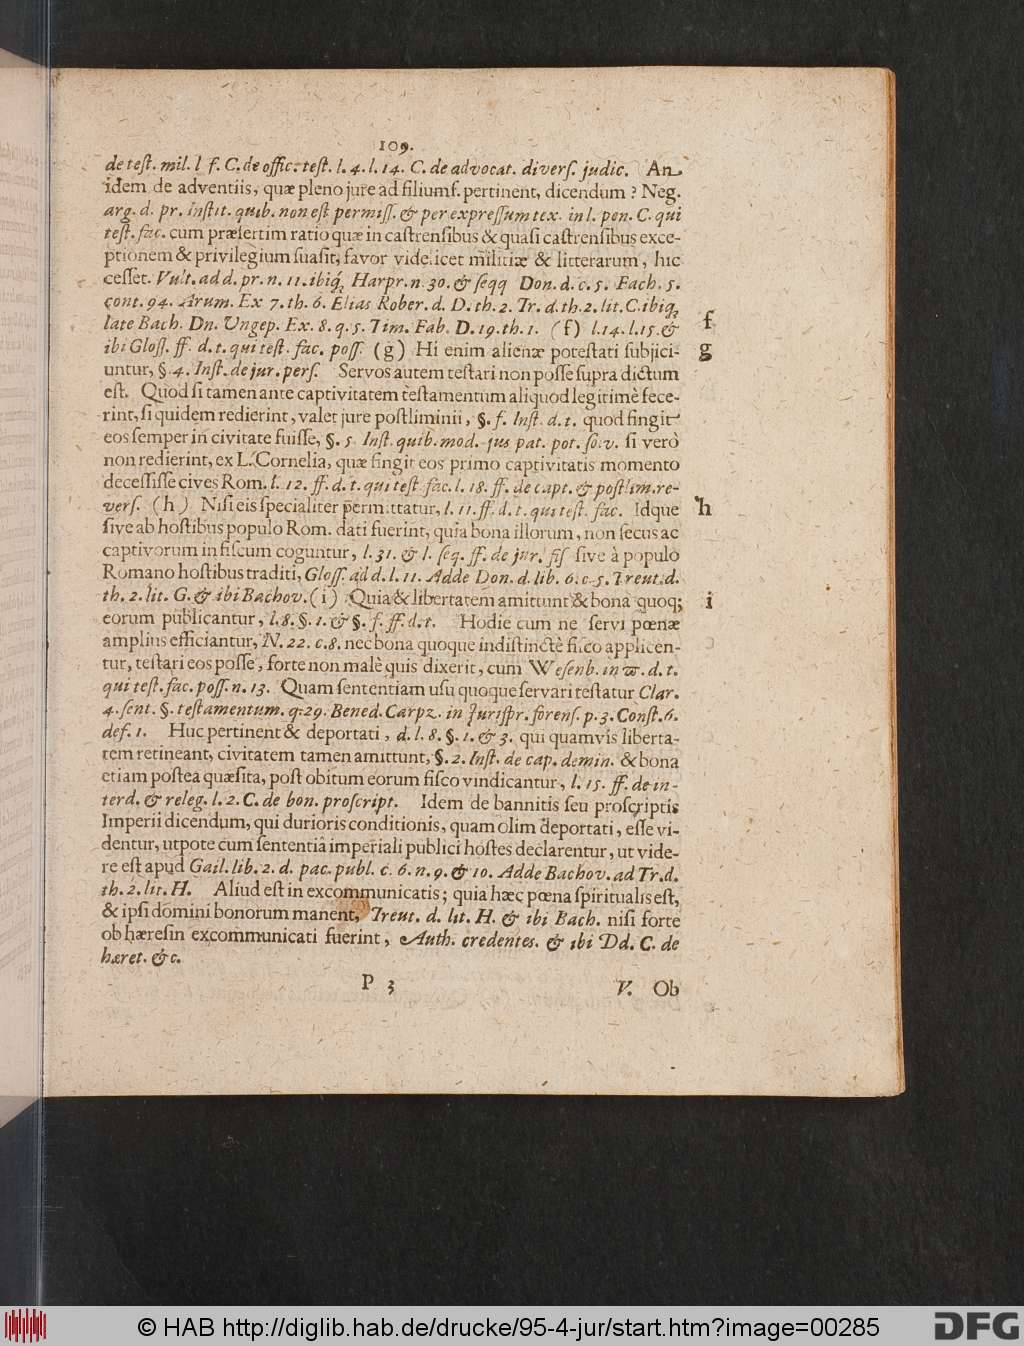 109.
de teſt. mil. l f. C. de offic. teſt. l. 4. l. 14. C. de advocat. diverſ. judic. An
idem de adventiis, quæ pleno jure ad filiumf. pertinent, dicendum? Neg.
arg. d. pr. Inſtit. quib. non eſt permiſſ. & per expreſſum tex. in l. pen. C. qui
teſt. fac. cum præſertim ratio quæ in caſtrenſibus & quaſi caſtrenſibus exce-
ptionem & privilegium ſuaſit, favor videlicet militiæ & litterarum, hic
ceſſet. Vult. ad d. pr. n. 11. ibiq́; Harpr. n. 30. & ſeqq Don. d. c. 5. Fach. 5.
cont. 94. Arum. Ex 7. th. 6. Elias Rober. d. D. th. 2. Tr. d. th. 2. lit. C. ibiq;
late Bach. Dn. Ungep. Ex. 8. q. 5. Tim. Fab. D. 19. th. 1. (f) l. 14. l. 15. & f
ibi Gloſſ. ff. d. t. qui teſt. fac. poſſ. (g) Hi enim alienæ poteſtati ſubjici- g
untur, §. 4. Inſt. de jur. perſ. Servos autem teſtari non poſſe ſupra dictum
eſt. Quod ſi tamen ante captivitatem teſtamentum aliquod legitimè fece-
rint, ſi quidem redierint, valet jure poſtliminii, §. f. Inſt. d. t. quod fingit
eos ſemper in civitate fuiſſe, §. 5 Inſt. quib. mod. jus pat. pot. ſo. v. ſi verò
non redierint, ex L. Cornelia, quæ fingit eos primo captivitatis momento
deceſſiſſe cives Rom. l. 12. ff. d. t. qui teſt. fac. l. 18. ff. de capt. & poſtlim. re-
verſ. (h) Niſi eis ſpecialiter permittatur, l. 11. ff. d. t. qui teſt. fac. Idque h
ſive ab hoſtibus populo Rom. dati fuerint, quia bona illorum, non ſecus ac
captivorum in fiſcum coguntur, l. 31. & l. ſeq. ff. de jur. fiſ ſive à populo
Romano hoſtibus traditi, Gloſſ. ad d. l. 11. Adde Don. d. lib. 6. c. 5. Treut. d.
th. 2. lit. G. & ibi Bachov. (i) Quia & libertatem amittunt & bona quoq; i
eorum publicantur, l. 8. §. 1. & §. f. ff. d. t. Hodie cum ne ſervi pœnæ
amplius efficiantur, N. 22. c. 8. nec bona quoque indiſtinctè fiſco applicen-
tur, teſtari eos poſſe, forte non malè quis dixerit, cum Weſenb. in ϖ. d. t.
qui teſt. fac. poſſ. n. 13. Quam ſententiam uſu quoque ſervari teſtatur Clar.
4. ſent. §. teſtamentum. q. 29. Bened. Carpz. in Juriſpr. forenſ. p. 3. Conſt. 6.
def. 1. Huc pertinent & deportati, d. l. 8. §. 1. & 3. qui quamvis liberta-
tem retineant, civitatem tamen amittunt, §. 2. Inſt. de cap. demin. & bona
etiam poſtea quæſita, poſt obitum eorum fiſco vindicantur, l. 15. ff. de in-
terd. & releg. l. 2. C. de bon. proſcript. Idem de bannitis ſeu proſcriptis
Imperii dicendum, qui durioris conditionis, quam olim deportati, eſſe vi-
dentur, utpote cum ſententiâ imperiali publici hoſtes declarentur, ut vide-
re eſt apud Gail. lib. 2. d. pac. publ. c. 6. n. 9. & 10. Adde Bachov. ad Tr. d.
th. 2. lit. H. Aliud eſt in excommunicatis; quia hæc pœna ſpiritualis eſt,
& ipſi domini bonorum manent, Treut. d. lit. H. & ibi Bach. niſi forte
ob hæreſin excommunicati fuerint, Auth. credentes. & ibi Dd. C. de
hæret. &c.
P 3 V. Ob
© HAB http://diglib.hab.de/drucke/95-4-jur/start.htm?image=00285
DFG